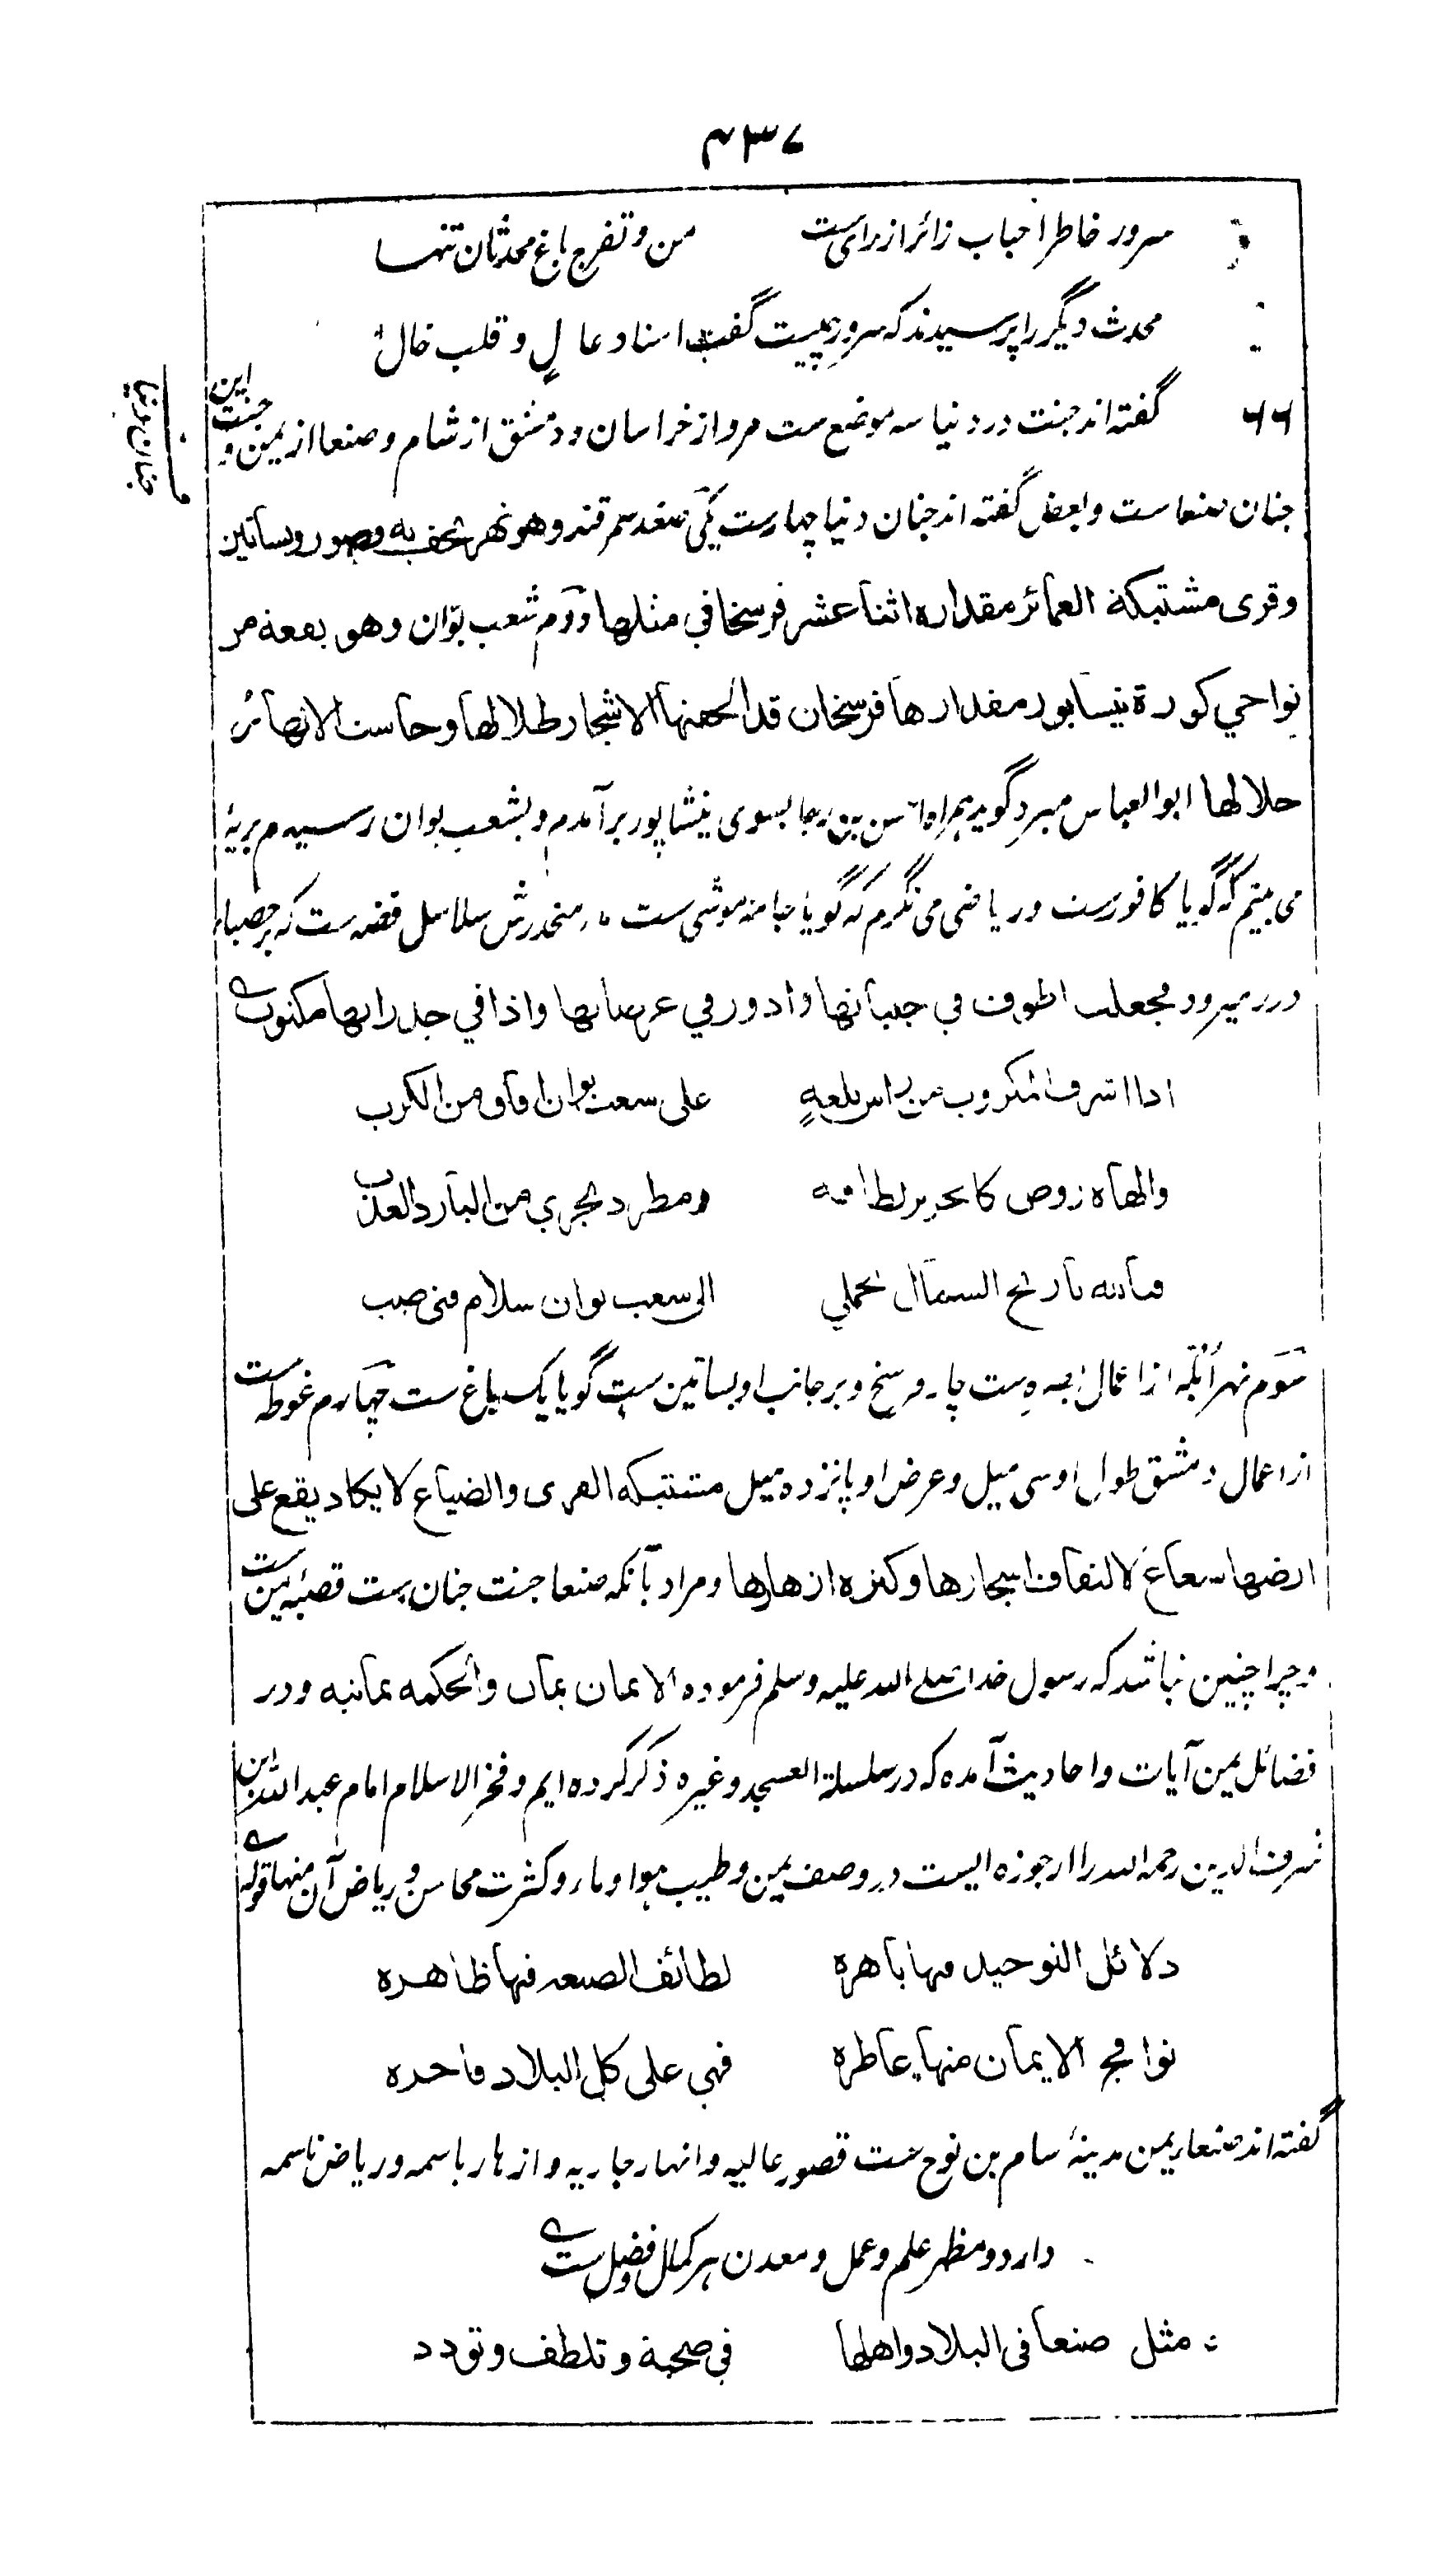 ۴۳۷
سرور خاطر احباب زائر از رای ست من و تفرج باغ محدثان تنها
محدث دیگر را پرسیدند که سرور چیست گفت اسناد عالٍ و قلب خالٍ
۶۶ گفته اند جنت در دنیا سه موضع ست مرو از خراسان و دمشق از شام و صنعا از یمن و جنت این
جنان دنیا
جنان صنعا ست و بعض گفته اند جنان دنیا چهارست یکی صغد سمرقند وهو نهر تحف به قصور وبساتین
وقری مشتبکة العمائر مقداره اثنا عشر فرسخا في مثلها دوم شعب بوّان وهو بقعة من
نواحي کورة نیسابور مقدارها فرسخان قد الحفتها الاشجار ظلالها وجاست الانهار
خلالها ابوالعباس مبرد گوید همراه حسن بن رجا بسوی نیشاپور برآمدم و بشعب بوان رسیدم بریۂ
می بینم که گویا کافورست و ریاضی می نگرم که گویا جامۂ موشی ست منحدرش سلاسل فضه ست که بر حصباء
درر میرود فجعلت اطوف في جنباتها وادور في عرصاتها واذا في جدرانها مکتوب
اذا اشرف المکروب من راس تلعةٍ علی شعب بوان افاق من الکرب
والهاه روض کالحریر لطافة ومطرد یجري من البارد العذب
فبالله یا ریح الشمال تحملي الی شعب بوان سلام فتی صب
سوم نهر اُبُلّه از اعمال بصره ست چار فرسخ و بر جانب او بساتین ست گویا یک باغ ست چهارم غوطه ست
از اعمال دمشق طول او سی میل و عرض او پانزده میل مشتبکة القری والضیاع لا یکاد یقع علی
ارضها شعاع لالتفاف اشجارها وکثرة ازهارها و مراد بآنکه صنعا جنت جنان ست قصبۂ یمن ست
و چرا چنین نباشد که رسول خدا صلی الله علیه وسلم فرموده الایمان یمان والحکمة یمانیة و در
فضائل یمن آیات و احادیث آمده که در سلسلة العسجد وغیره ذکر کرده ایم و فخر الاسلام امام عبدالله بن
شرف الدین رحمه الله را ارجوزه ایست در وصف یمن و طیب هوا و ماء و کثرت محاسن و ریاض آن منها قوله
دلائل التوحید فیها باهرة لطائف الصنعة فیها ظاهرة
نوافج الایمان منها عاطرة فهي علی کل البلاد فاخرة
گفته اند صنعا یمن مدینۂ سام بن نوح ست قصور عالیه و انهار جاریه و ازهار باسمه و ریاض ناسمه
دارد و مظهر علم و عمل و معدن هر کمال و فضل ست
مثل صنعا فی البلاد واهلها في صحبة وتلطف وتودد